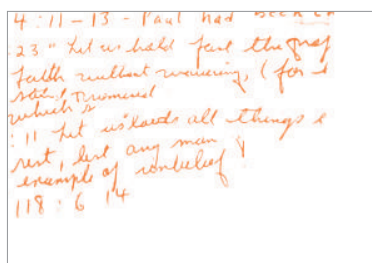 4:11-13 - Paul had been
:23 " Let us hold fast the prof
faith without wavering, (for
promised
which
:11 Let us all things
rest, lest any man
example of unbelief
118:6 14